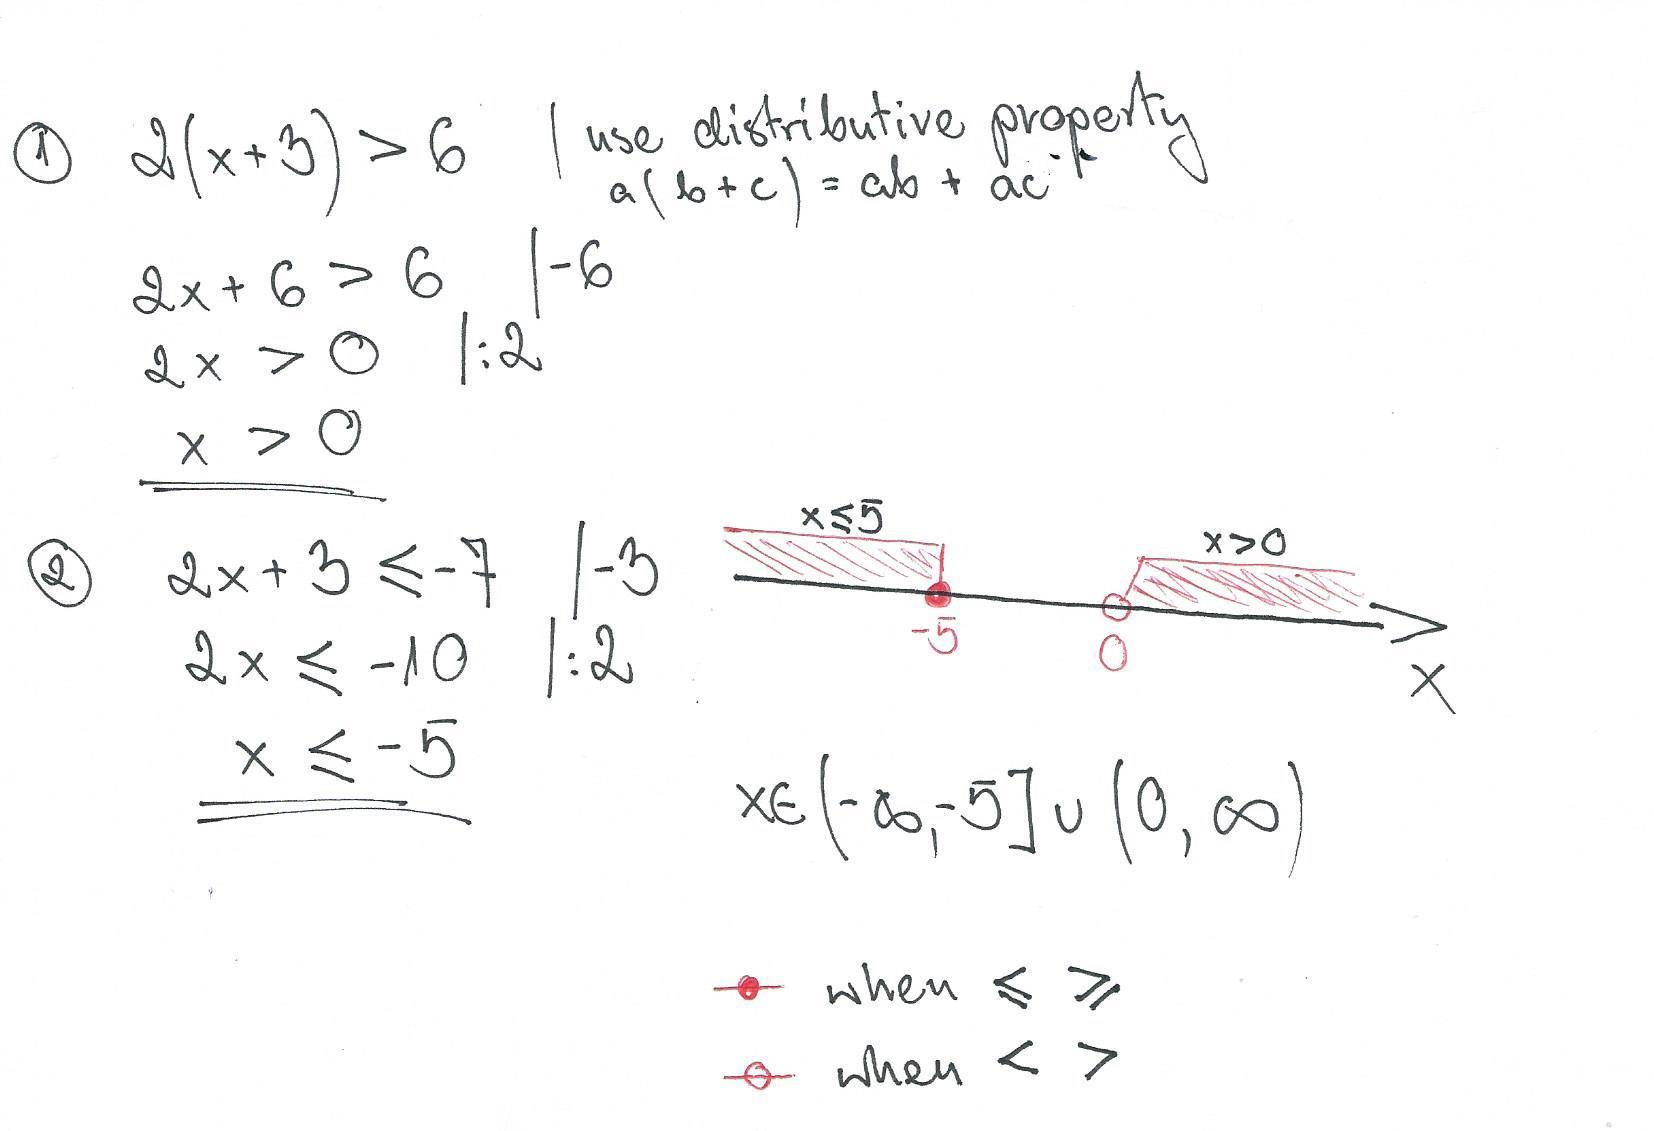 ① 2(x+3) > 6 | use distributive property
a(b+c) = ab + ac
2x + 6 > 6 |-6
2x > 0 |:2
x > 0
② 2x + 3 ⩽ -7 |-3
2x ⩽ -10 |:2
x ⩽ -5
x⩽5
x>0
-5
0
x
x∈(-∞,-5]∪(0,∞)
when ⩽ ⩾
when < >